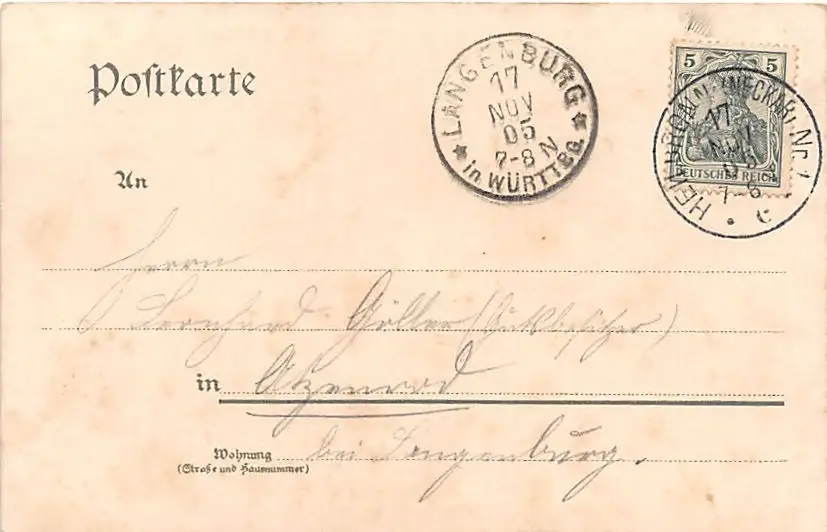 Postkarte
LANGENBURG
17
NOV
05
7-8 N
in WÜRTTBG.
5 5
DEUTSCHES REICH
HEILBRONN (NECKAR) Nr. 1
17
NOV
7-8
C
An
Herrn
Bernhard Göller (Gutsbesitzer)
in Atzenrod
Wohnung
(Straße und Hausnummer)
bei Langenburg.